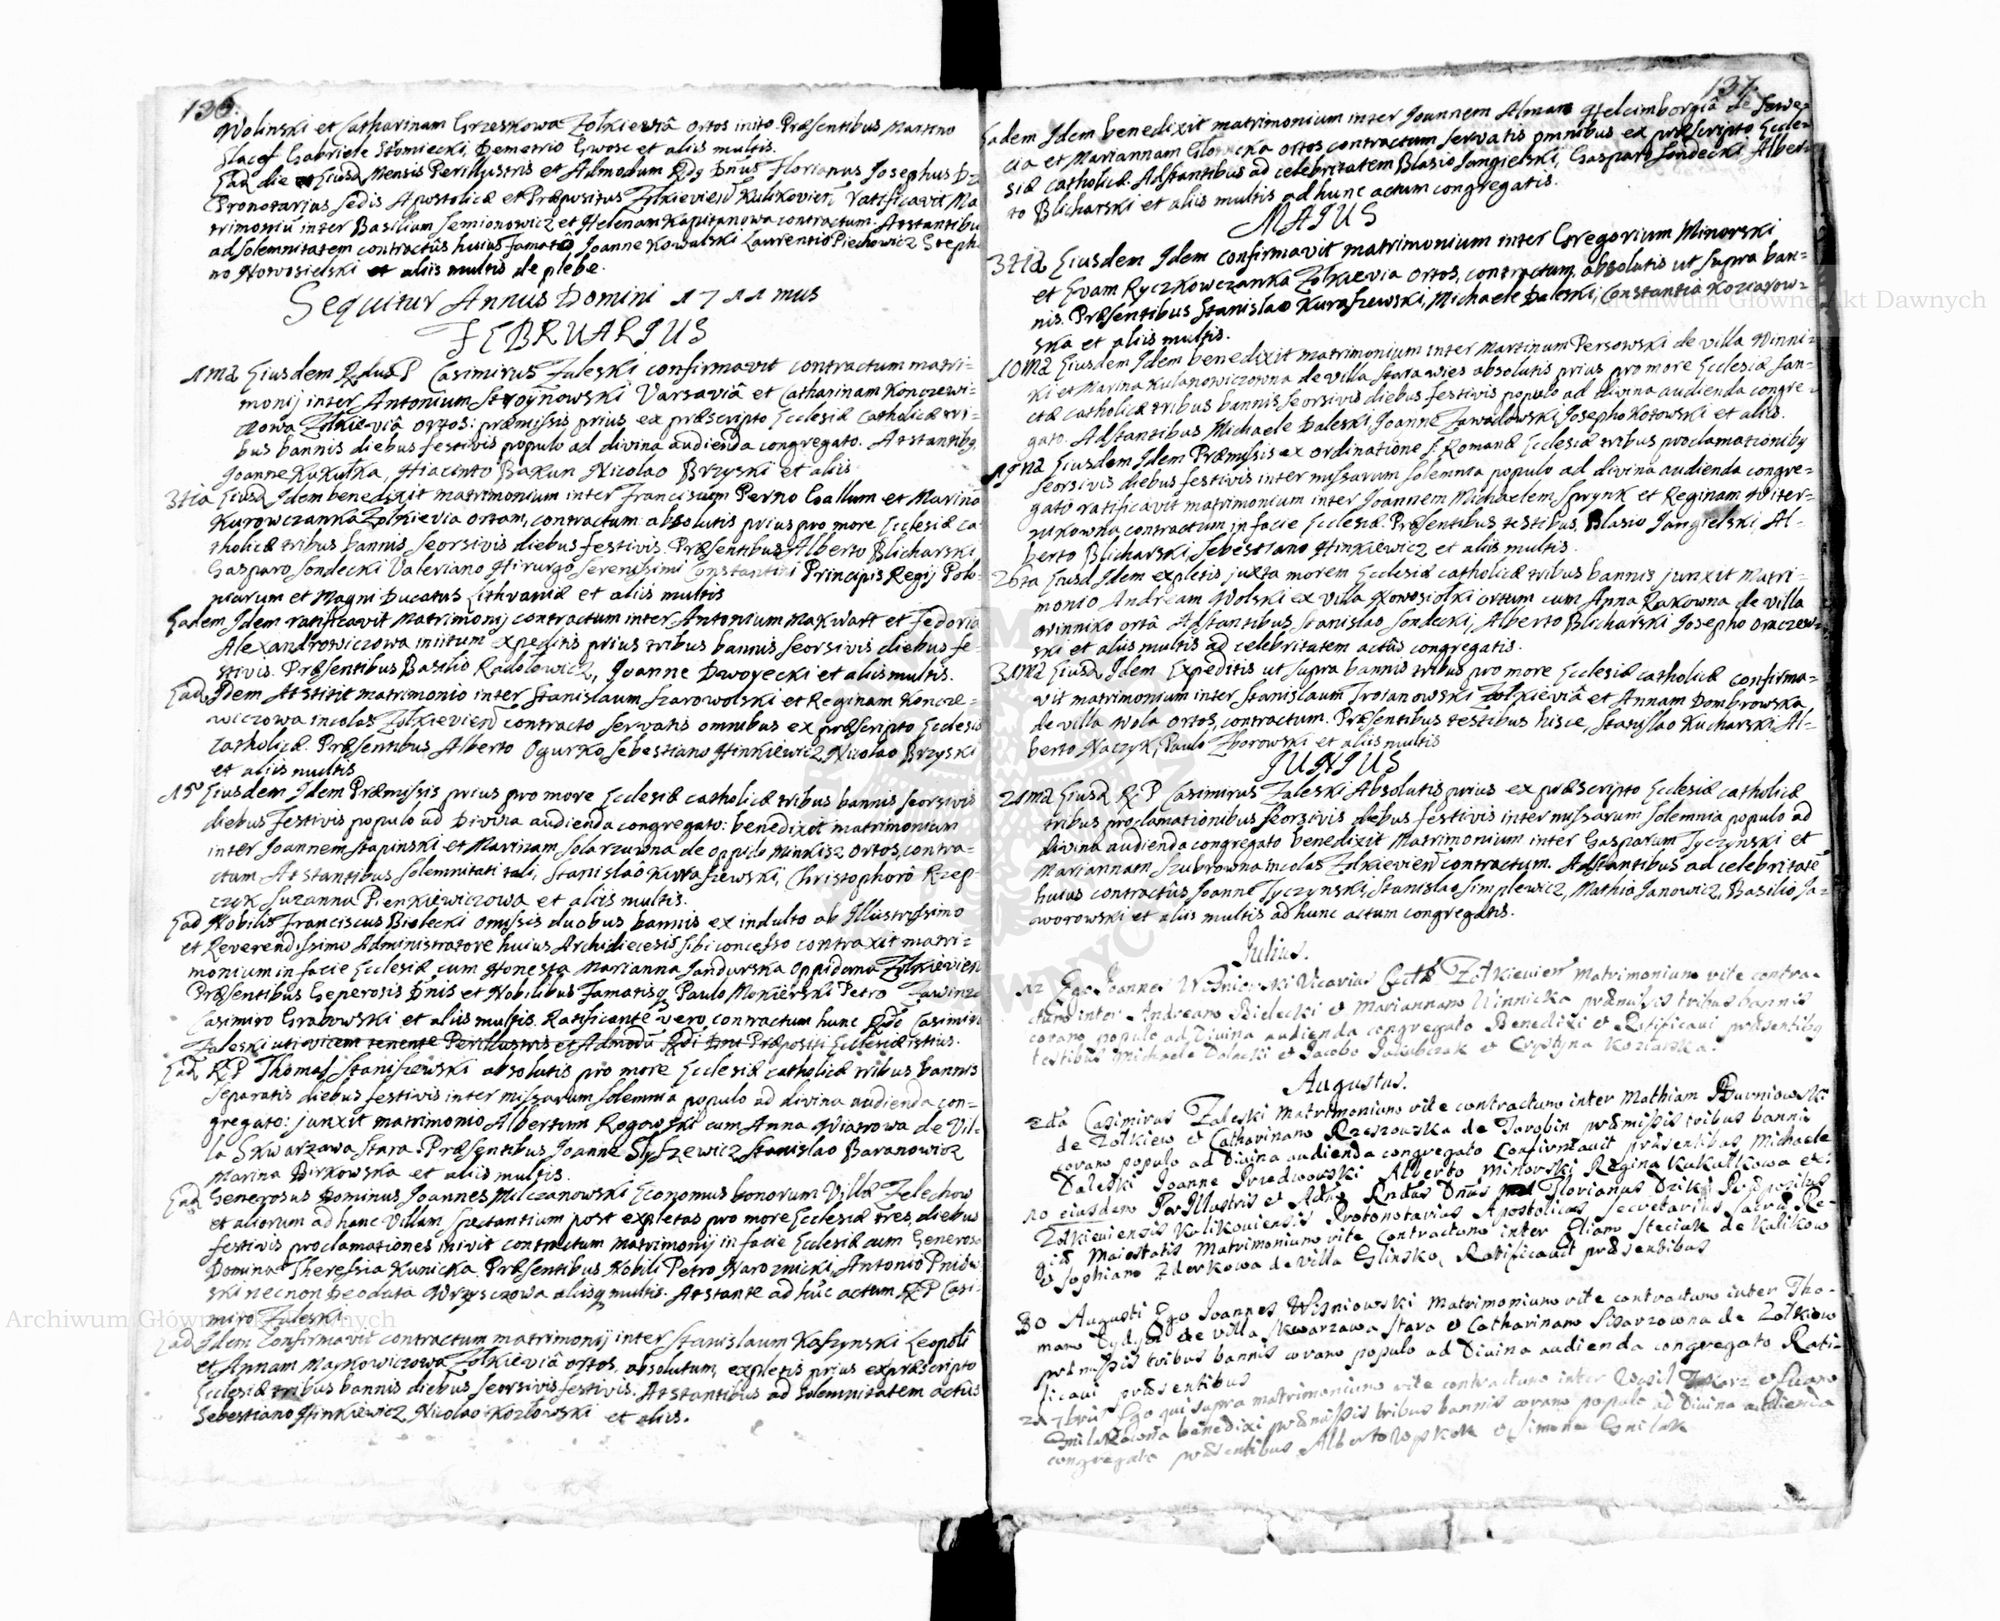 136.
Wolinski et Catharinam Grzeskowa Zolkieviâ ortos inito. Præsentibus Martino
Glacef Gabriele Słomiecki, Demetrio Gwosc et aliis multis.
Ead die et Eiusd Mensis Perillustris et Admodum Rdg Dnus Florianus Josephus Dz
Pronotarius Sedis Apostolicæ et Præpositus Zolkievien Kulikovien ratificavit Ma
trimoniu inter Basilium Semionowicz et Helenam Kapitanowa contractum. Astantibu
ad solemnitatem contractûs huius famato Joanne Kowalski Laurentio Piechowicz Steph
no Nowosielski et aliis multis de plebe.
Sequitur Annus Domini 1711mus
FEBRUARIUS
1ma Eiusdem Rndus P Casimirus Zaleski confirmavit contractum matri-
monij inter Antonium Stroynowski Varsaviâ et Catharinam Konczewi-
czowa Zolkieviâ ortos: præmissis prius, ex præscripto Ecclesiæ Catholicæ tri-
bus bannis diebus festivis populo ad divina audienda congregato. Astantibg
Joanne Kukułka, Hiacinto Bakun Nicolao Brzyski et aliis
3tia Eiusd Idem benedixit matrimonium inter Franciscum Perno Gallum et Marina
Kurowczanka Zolkievia ortam, contractum absolutis prius pro more Ecclesiæ Ca-
tholicæ tribus bannis seorsivis diebus festivis. Præsentibus Alberto Blicharski
Gasparo Sondecki Valeriano Hirurgo Serenissimi Constantini Principis Regij Polo-
niarum et Magni Ducatus Lithvaniæ et aliis multis
Eadem Idem ratificavit Matrimonij contractum inter Antonium Makwart et Fedoria
Alexandrowiczowa initum expeditis prius tribus bannis seorsivis diebus fe-
stivis. Præsentibus Basilio Radolowicz, Joanne Dwoyecki et aliis multis.
Ead Idem Astitit matrimonio inter Stanislaum Szarowolski et Reginam Koncze-
wiczowa incolas Zolkievien contracto servatis omnibus ex præscripto Ecclesiæ
Catholicæ. Præsentibus Alberto Ogurko Sebestiano Hinkiewicz, Nicolao Brzyski
et aliis multis
15 Eiusdem Idem Præmissis prius pro more Ecclesiæ catholicæ tribus bannis seorsivis
diebus festivis populo ad Divina audienda congregato: benedixit matrimonium
inter Joannem Stapinski et Marinam Solarzuwna de oppido Minkisz ortos, contra-
ctum Astantibus solemnitati tali, Stanislaô Kuraszewski, Christophorô Rzep-
czyk Suzanna Pienkiewiczowa et aliis multis.
Ead Nobilis Franciscus Bielecki omissis duobus bannis ex indulto ab Illustrissimo
et Reverendissimo Administratore huius Archidiecesis sibi concesso contraxit matri-
monium in facie Ecclesiæ cum Honesta Marianna Jandurska Oppidana Zolkievien
Præsentibus Generosis Dnis et Nobilibus Famatisq Paulo Mokierski Petro Zawinzo
Casimiro Grabowski et aliis multis. Ratificante vero, contractum hunc Rdo Casimiro
Zaleski uti vicem tenente Perillustris et Admodu Rdi Dni Præpositi Ecclesiæ istius.
Ead RP Thomas Staniszewski absolutis pro more Ecclesiæ catholicæ tribus bannis
separatis diebus festivis inter missarum solemnia populo ad divina audienda con-
gregato: junxit matrimonio Albertum Rogowski cum Anna Wiatrowa de Vil-
la Skwarzawa Stara. Præsentibus Joanne Slyszewicz Stanislao Baranowicz
Marina Birkowska et aliis multis.
Ead Generosus Dominus Joannes Milczanowski Economus bonorum Villæ Zelechow
et aliorum ad hanc Villam spectantium post expletas pro more Ecclesiæ tres, diebus
festivis proclamationes inivit contractum matrimonij in facie Ecclesiæ cum Generosa
Domina Theressia Kunicka. Præsentibus Nobili Petro Naroznicki, Antonio Pniow
ski nec non Deodata Wrzyszczowa aliisq multis. Astante ad hûc actum RP Casi-
miro Zaleski
Ead Idem Confirmavit contractum matrimonij inter Stanislaum Kaszynski Leopoli
et Annam Maykowiczowa Zolkieviâ ortos, absolutum, expletis prius ex præscripto
Ecclesiæ tribus bannis diebus seorsivis festivis. Astantibus ad solemnitatem actûs
Sebestiano Hinkiewicz Nicolao Kozłowski et aliis.
137.
Eadem Idem benedixit matrimonium inter Joannem Alman Helcimborgiâ de Swe-
cia et Mariannam Glo cka ortos contractum servatis omnibus ex præscripto Eccle-
siæ catholicæ. Adstantibus ad celebritatem Blasio Jangielski, Gasparo Sondecki Alber-
to Blicharski et aliis multis ad hunc actum congregatis.
MAIUS
3tia Eiusdem Idem confirmavit matrimonium inter Gregorium Minorski
et Evam Ryczkowczanka Zolkievia ortos, contractum, absolutis ut supra ban-
nis. Præsentibus Stanislao Kuraszewski, Michaele Daleski, Constantia Koziarow-
ska et aliis multis.
10ma Eiusdem Idem benedixit matrimonium inter Martinum Persowski de villa Winni-
ki et Marina Kulanowiczowna de villa Starawies absolutis prius pro more Ecclesiæ San-
ctæ catholicæ tribus bannis seorsivis diebus festivis populo ad divina audienda congre-
gato. Adstantibus Michaele Daleski Joanne Zawadowski Josepho Kotowski et aliis.
19na Eiusdem Idem Præmissis ex ordinatione S. Romanæ Ecclesiæ tribus proclamationibg
seorsivis diebus festivis inter missarum solemnia populo ad divina audienda congre-
gato ratificavit matrimonium inter Joannem Michaelem Sprynk et Reginam Witer-
nikowna, contractum in facie Ecclesiæ. Præsentibus testibus, Blasio Jangielski, Al-
berto Blicharski, Sebestiano Hinkiewicz et aliis multis.
26ta Eiusd Idem expletis juxta morem Ecclesiæ catholicæ tribus bannis junxit matri-
monio Andream Wolski ex villa Nowosiołki ortum cum Anna Rakowna de villa
Winniko ortâ Adstantibus Stanislao Sondecki, Alberto Blicharski Josepho Oraczew-
ski et aliis multis ad celebritatem actûs congregatis.
31ma Eiusd Idem Expeditis ut supra bannis tribus pro more Ecclesiæ catholicæ confirma-
vit matrimonium inter Stanislaum Trojanowski Zolkieviâ et Annam Dombrowska
de villa Wola ortos, contractum. Præsentibus testibus hisce, Stanislao Kucharski Al-
berto Naczyk, Paulo Zborowski et aliis multis
JUNIUS
21ma Eiusd RP Casimirus Zaleski Absolutis prius ex præscripto Ecclesiæ catholicæ
tribus proclamationibus seorsivis diebus festivis inter missarum solemnia populo ad
divina audienda congregato benedixit Matrimonium inter Gasparum Tyczynski et
Mariannam Szubrowna incolas Zolkievien contractum. Adstantibus ad celebritatê
huius contractûs Joanne Tyczynski, Stanislao Simplewicz, Mathia Janowicz, Basilio Ja-
worowski et aliis multis ad hunc actum congregatis.
Julius.
12 Ego Joannes Wisniowski Vicarius Eccle Zołkievien Matrimonium rite contra-
ctum inter Andream Bielecki et Mariannam Winnicka præmissis tribus bannis
coram populo ad Divina audienda congregato Benedixi et Ratificavi præsentibg
testibus Michaele Dolacki et Jacobo Jalubczak et Crystyna Koziarska.
Augustus.
2da Casimirus Zaleski Matrimonium rite contractum inter Mathiam Burniowski
de Zolkiew et Catharinam Rzeszowska de Torobin præmissis tribus bannis
coram populo ad Divina audienda congregato Confirmavit præsentibus Michaele
Daleski Joanne Alberto Minowski Regina Kukulkowa et:
10 eiusdem PerIllustris et Adm Rndus Dnus Florianus Dziki Præpositus
Zolkieviensis Kulikoviensis Protonotarius Apostolicus Secretarius Sacræ Re-
giæ Maiestatis Matrimonium rite contractum inter Eliam Steciuk de Kulikow
et Sophiam Zderkowa de villa Glinsko, Ratificavit præsentibus
30 Augusti Ego Joannes Wisniowski Matrimonium rite contractum inter Tho-
mam de villa Skwarzawa Stara et Catharinam de Zolkiew
præmissis tribus bannis coram populo ad Divina audienda congregato Rati-
ficavi præsentibus
21 7bris Ego qui supra matrimonium rite contractum inter Wasil et
benedixi præmissis tribus bannis coram populo ad Divina audienda
congregato præsentibus Alberto et Simone Gnilak
Archiwum Główne Akt Dawnych
Archiwum Główne Akt Dawnych